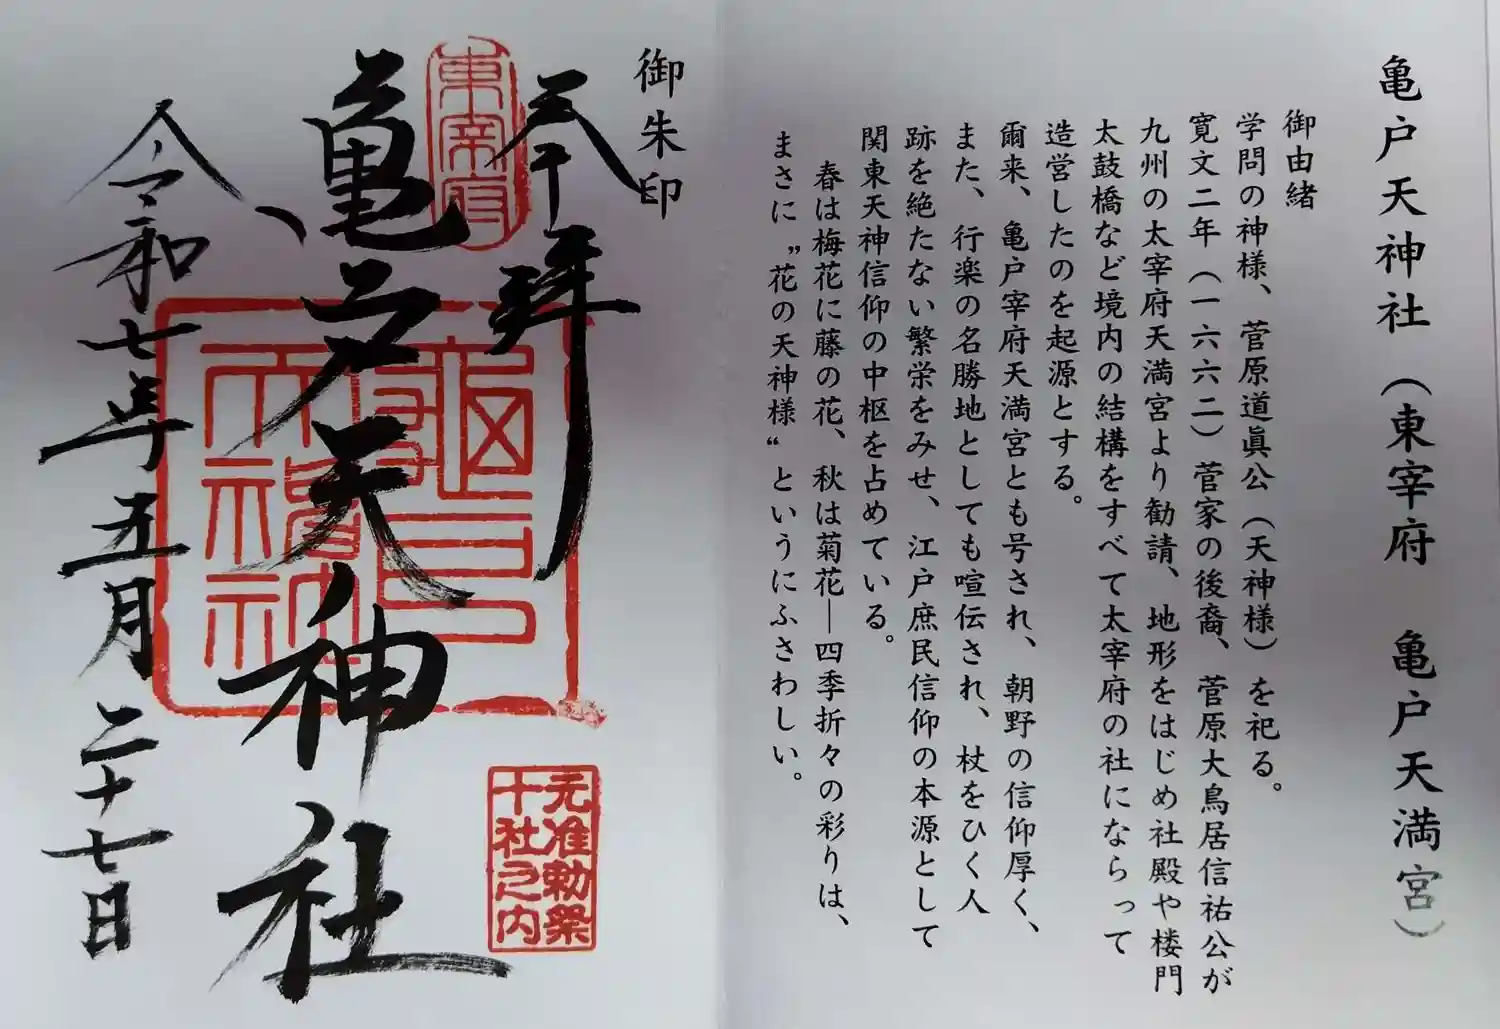 亀戸天神社（東宰府　亀戸天満宮）
御由緒
学問の神様、菅原道眞公（天神様）を祀る。
寛文二年（一六六二）菅家の後裔、菅原大鳥居信祐公が
九州の太宰府天満宮より勧請、地形をはじめ社殿や楼門
太鼓橋など境内の結構をすべて太宰府の社にならって
造営したのを起源とする。
爾来、亀戸宰府天満宮とも号され、朝野の信仰厚く、
また、行楽の名勝地としても喧伝され、杖をひく人
跡を絶たない繁栄をみせ、江戸庶民信仰の本源として
関東天神信仰の中枢を占めている。
春は梅花に藤の花、秋は菊花―四季折々の彩りは、
まさに〝花の天神様〟というにふさわしい。
御朱印
奉拝
東宰府
亀戸天神社
亀戸
天満神社
元准勅祭
十社之内
令和七年五月二十七日